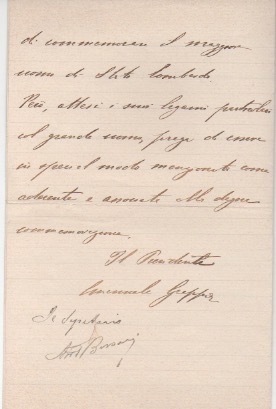 di commemorare il maggior
uomo di Stato lombardo
Però, attesi i suoi legami particolari
col grande uomo, prega di
in il modo menzionato come
aderente e alla degna
commemorazione.
Il Presidente
Emanuele Greppi
Il Segretario